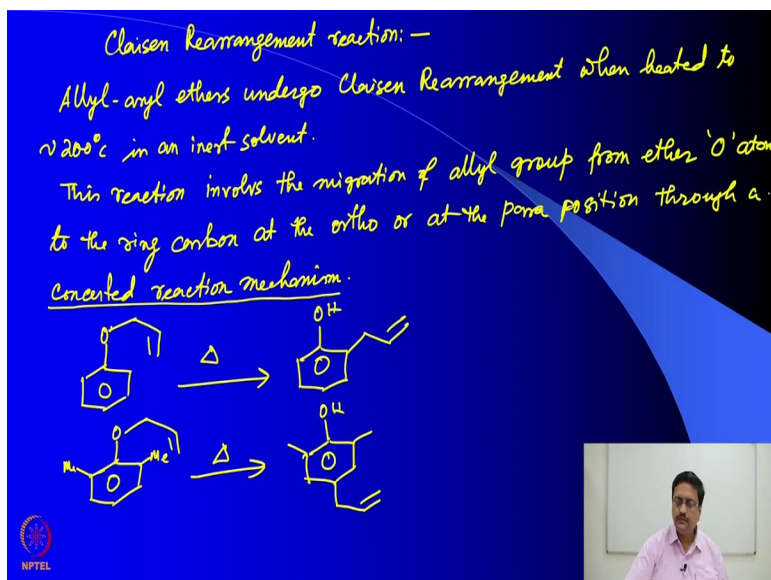 Claisen Rearrangement reaction: —
Allyl-aryl ethers undergo Claisen Rearrangement when heated to
~200°c in an inert solvent.
This reaction involvs the migration of allyl group from ether 'O' atom
to the ring carbon at the ortho or at the para position through a
concerted reaction mechanism.
O Δ OH
O Me Me Δ OH
NPTEL